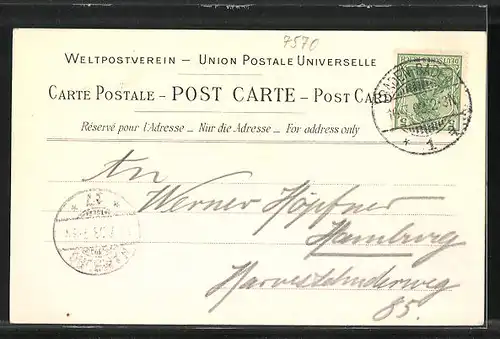 7570
WELTPOSTVEREIN – UNION POSTALE UNIVERSELLE
CARTE POSTALE – POST CARTE – POST CARD
Réservé pour l'Adresse _ Nur die Adresse _ For address only
BADEN-BADEN
* 1. a
An
Werner Höpfner
Hamburg
Harvestehuderweg
85.